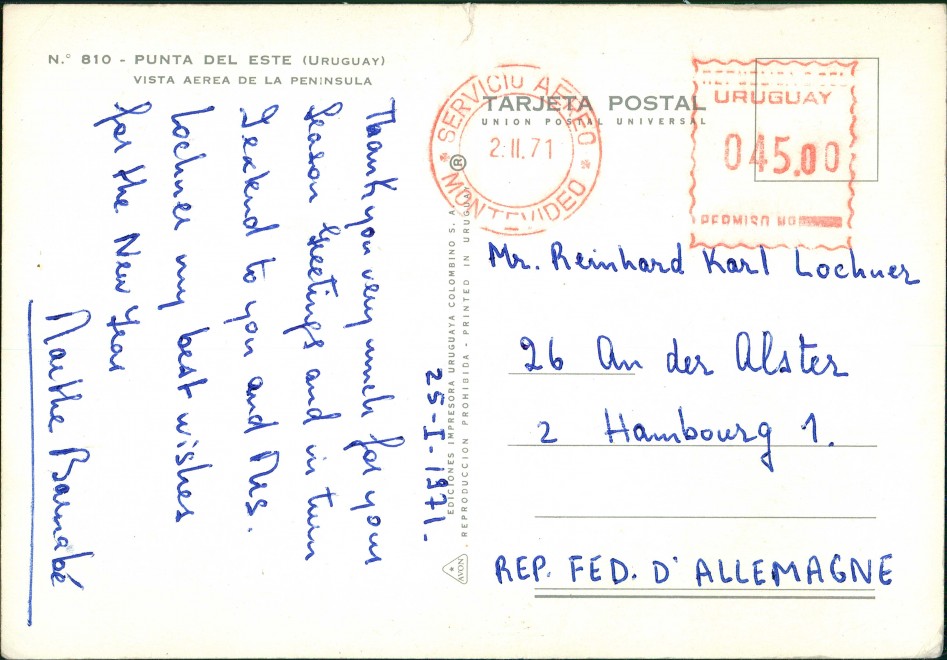 N.° 810 - PUNTA DEL ESTE (URUGUAY)
VISTA AEREA DE LA PENINSULA
25-I-1971.
Thank you very much for your
Season Greetings and in turn
I extend to you and Mrs.
Lochner my best wishes
for the New Year
Marthe Barnabé
EDICIONES IMPRESORA URUGUAYA COLOMBINO S.A.
REPRODUCCION PROHIBIDA - PRINTED IN URUGUAY
AVON
®
TARJETA POSTAL
UNION POSTAL UNIVERSAL
SERVICIO AEREO
2.II.71
* MONTEVIDEO *
URUGUAY
045.00
PERMISO Nº
Mr. Reinhard Karl Lochner
26 An der Alster
2 Hambourg 1.
REP. FED. D'ALLEMAGNE